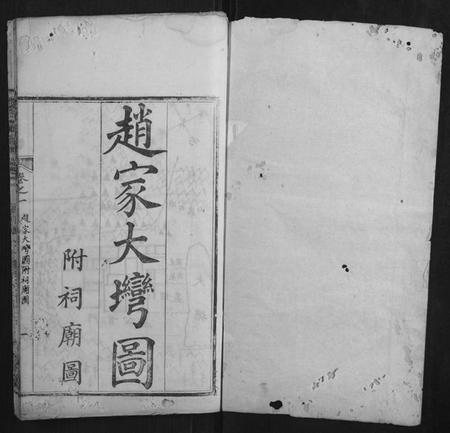 趙家大灣圖
附祠廟圖
卷之一 趙家大灣圖附祠廟圖 一